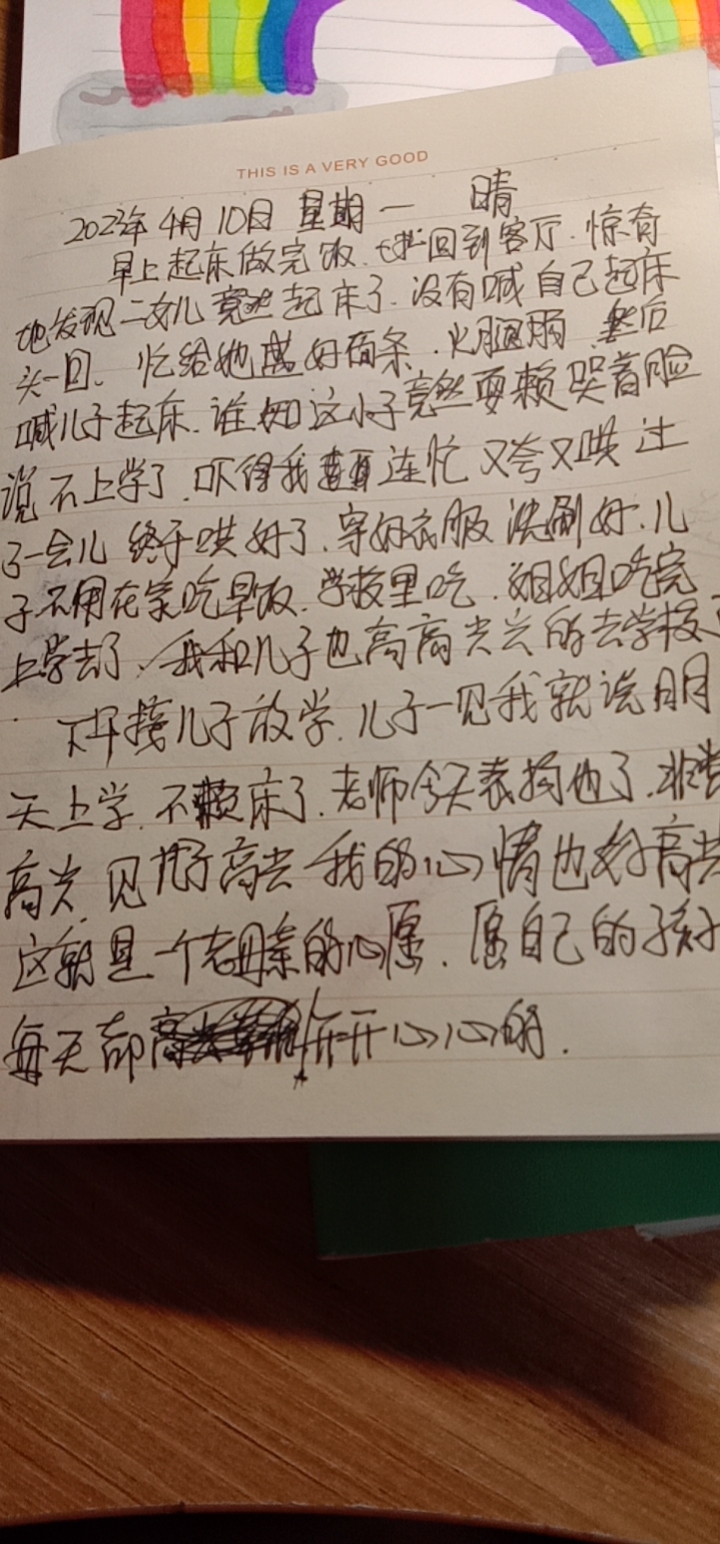 THIS IS A VERY GOOD
2023年4月10日 星期一 晴
早上起床做完饭. 回到客厅. 惊奇
地发现二女儿竟然起床了. 没有喊自己起床
头一回、忙给她盛好面条. 火腿肠 然后
喊儿子起床. 谁知这小子竟然耍赖哭着脸
说不上学了. 吓得我连忙又夸又哄 过
了一会儿 终于哄好了. 穿好衣服 洗刷好. 儿
子不用在家吃早饭. 学校里吃. 姐姐吃完
上学去了. 我和儿子也高高兴兴的去学校
下午接儿子放学. 儿子一见我就说明
天上学. 不赖床了. 老师今天表扬他了. 非常
高兴. 见儿子高兴 我的心情也好高兴
这就是一个老母亲的心愿. 愿自己的孩子
每天都开开心心的.